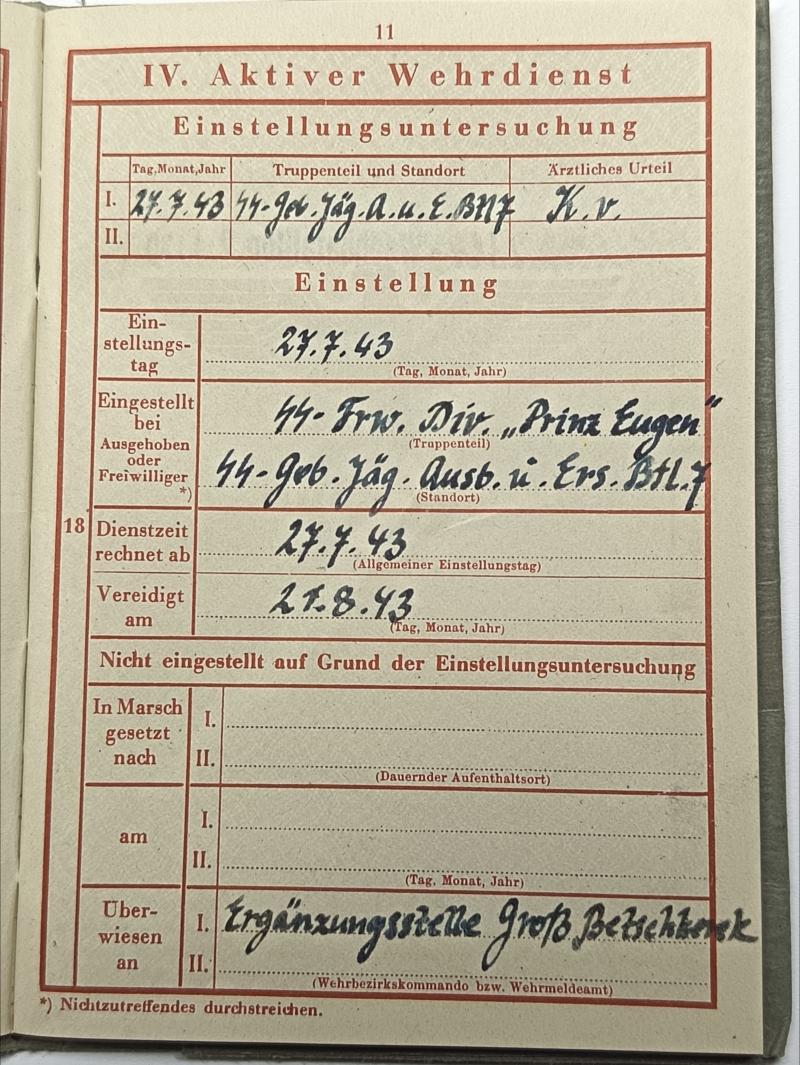 11
IV. Aktiver Wehrdienst
Einstellungsuntersuchung
Tag, Monat, Jahr Truppenteil und Standort Ärztliches Urteil
I. 27.7.43 SS-Geb. Jäg. A. u. E. Btl 7 K. v.
II.
Einstellung
Ein-
stellungs-
tag
27.7.43
(Tag, Monat, Jahr)
Eingestellt
bei
Ausgehoben
oder
Freiwilliger
*)
SS-Frw. Div. „Prinz Eugen"
(Truppenteil)
SS-Geb. Jäg. Ausb. u. Ers. Btl. 7
(Standort)
18
Dienstzeit
rechnet ab
27.7.43
(Allgemeiner Einstellungstag)
Vereidigt
am
21.8.43
(Tag, Monat, Jahr)
Nicht eingestellt auf Grund der Einstellungsuntersuchung
In Marsch
gesetzt
nach
I.
II.
(Dauernder Aufenthaltsort)
am
I.
II.
(Tag, Monat, Jahr)
Über-
wiesen
an
I. Ergänzungsstelle Groß Betschkerek
II.
(Wehrbezirkskommando bzw. Wehrmeldeamt)
*) Nichtzutreffendes durchstreichen.